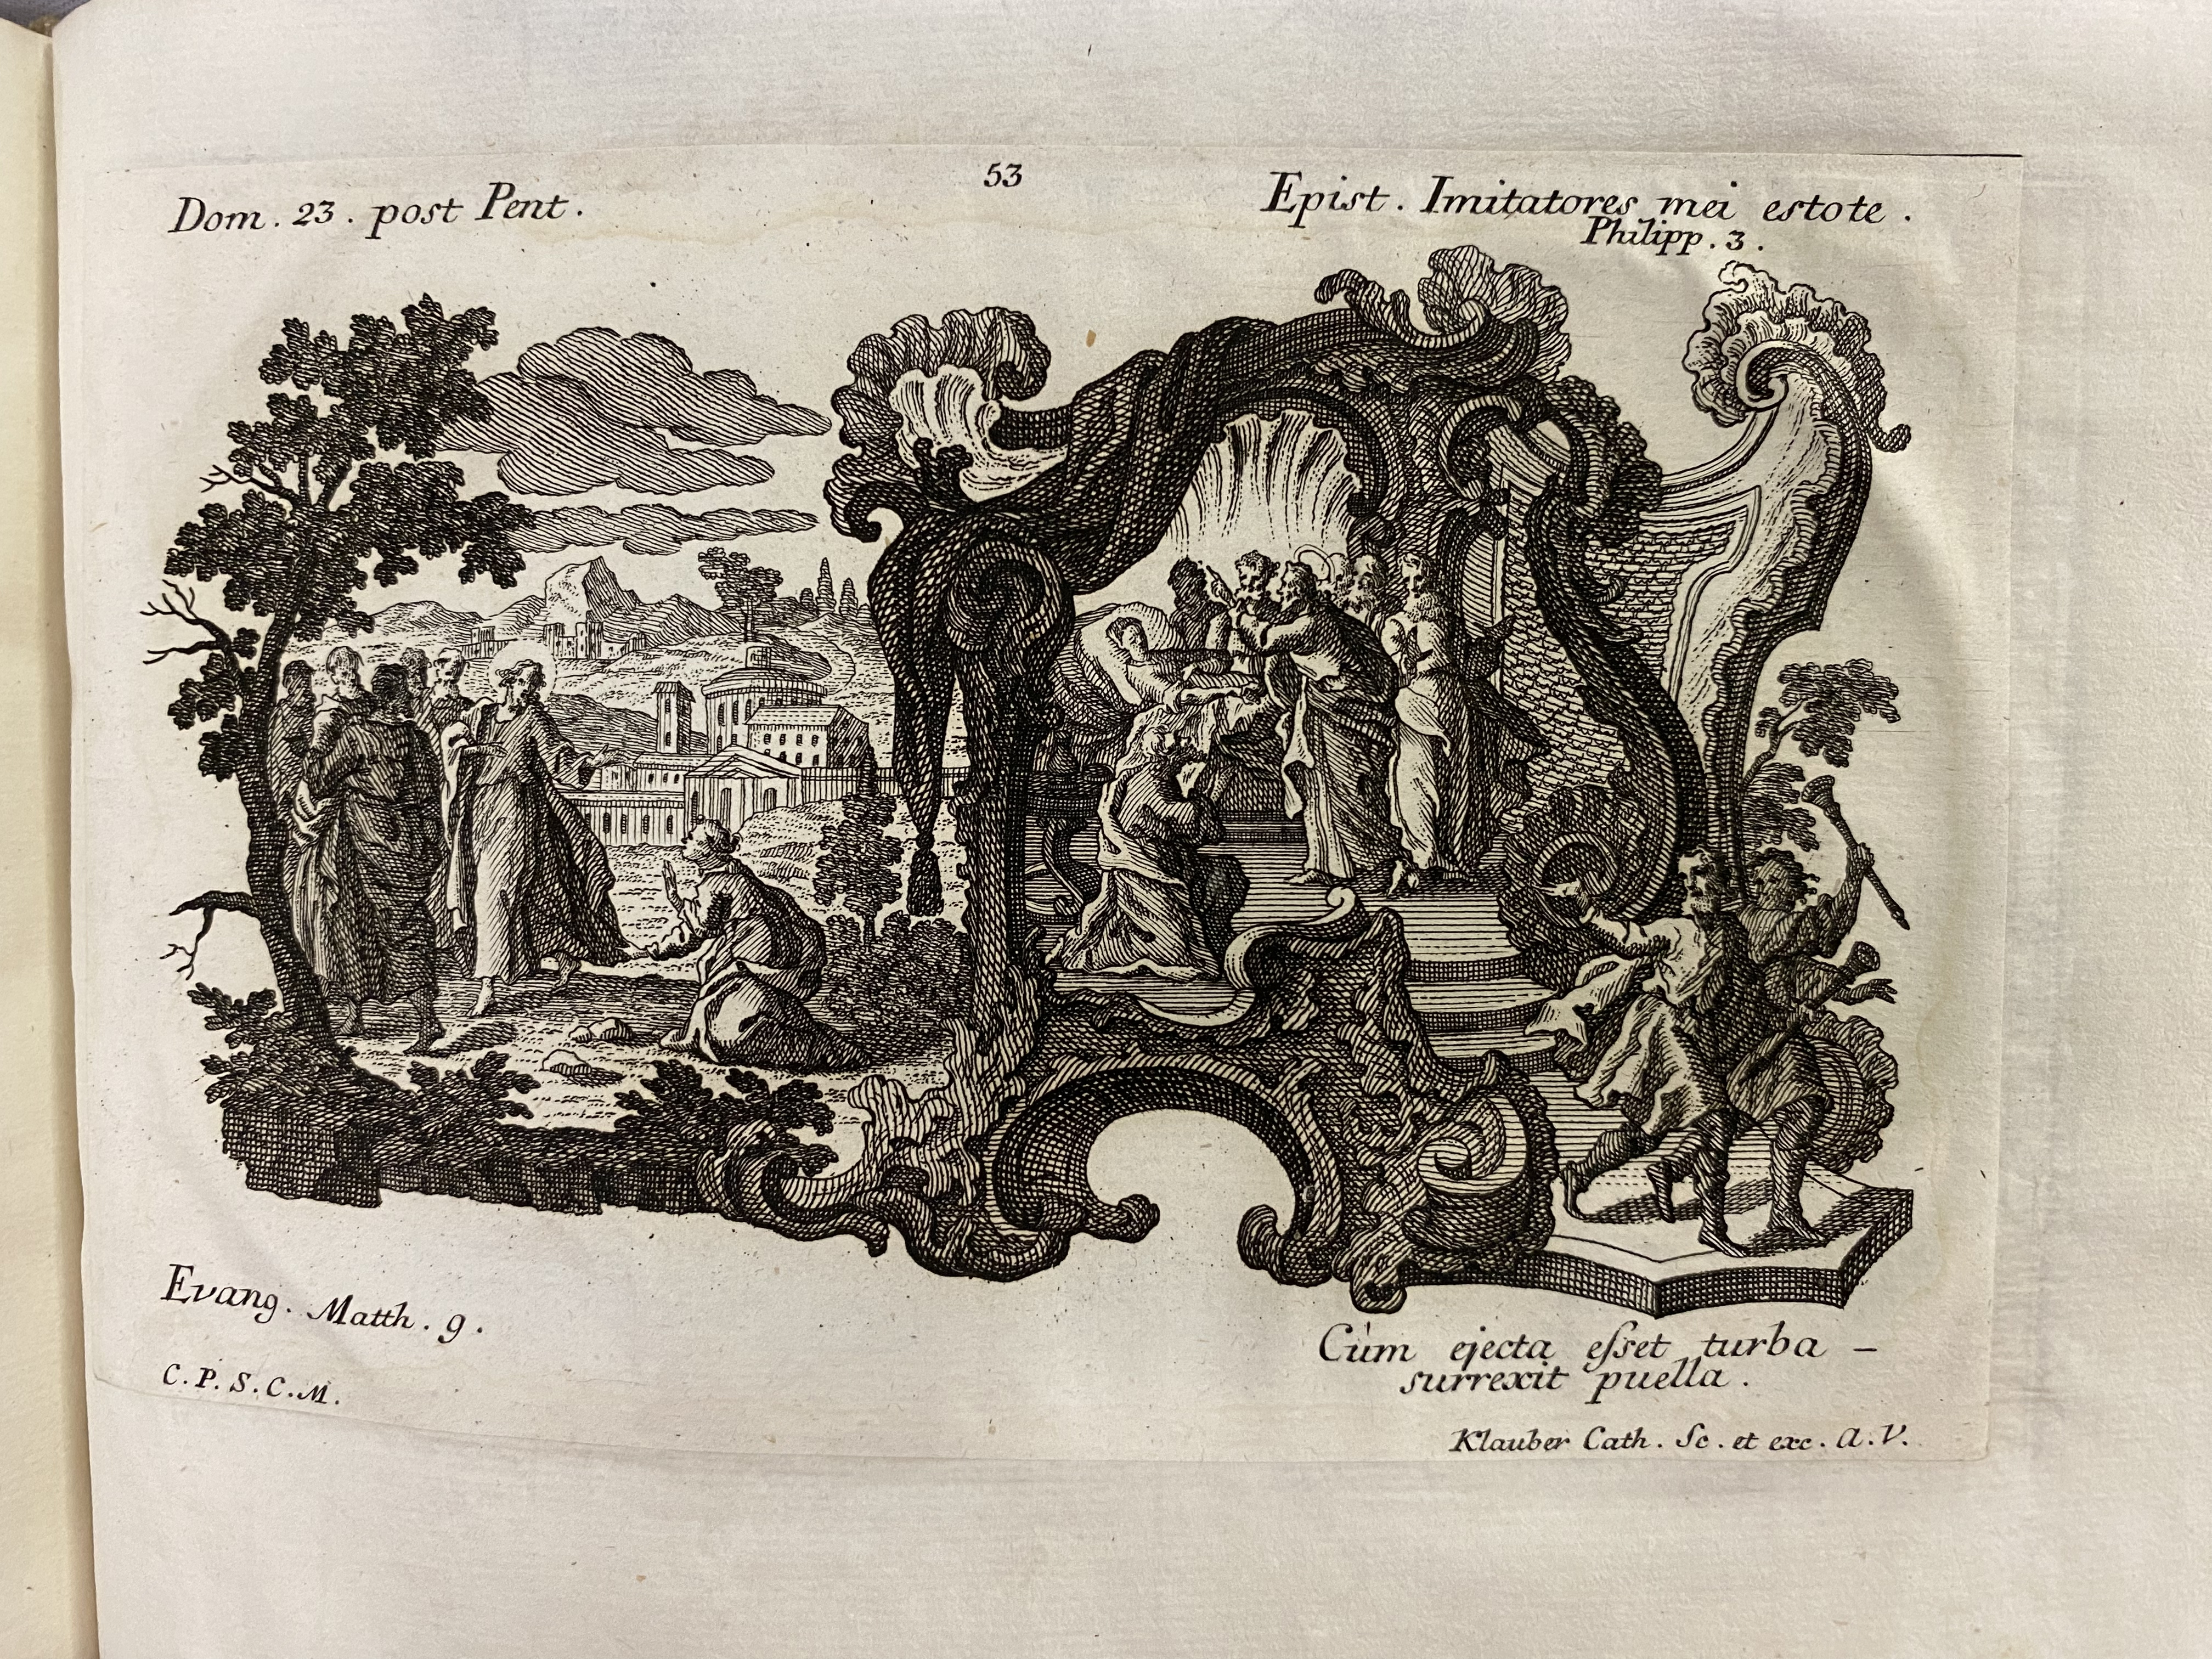 53
Dom. 23. post Pent.
Epist. Imitatores mei estote.
Philipp. 3.
Evang. Matth. 9.
C. P. S. C. M.
Cùm ejecta eſset turba –
surrexit puella.
Klauber Cath. Sc. et exc. A. V.